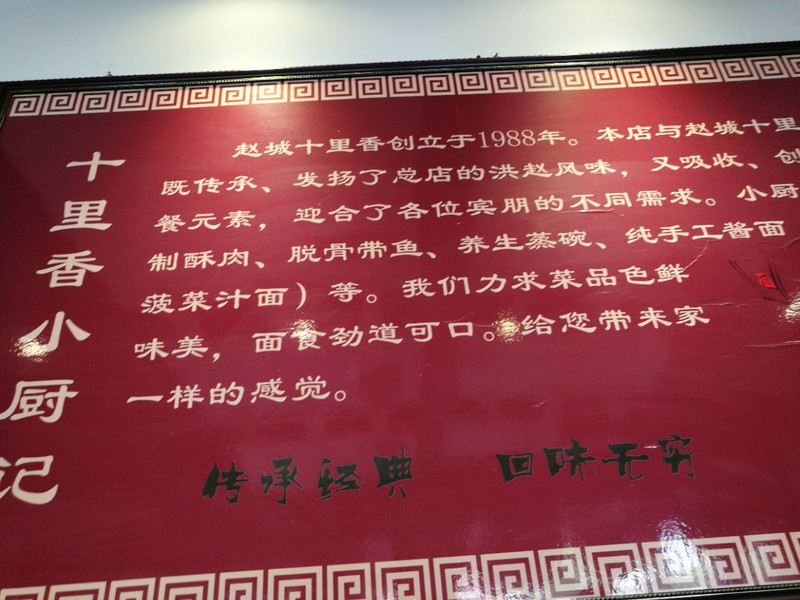 十里香小厨记
赵城十里香创立于1988年。本店与赵城十里
既传承、发扬了总店的洪赵风味，又吸收、创
餐元素，迎合了各位宾朋的不同需求。小厨
制酥肉、脱骨带鱼、养生蒸碗、纯手工酱面
菠菜汁面）等。我们力求菜品色鲜
味美，面食劲道可口。给您带来家
一样的感觉。
传承经典 回味无穷